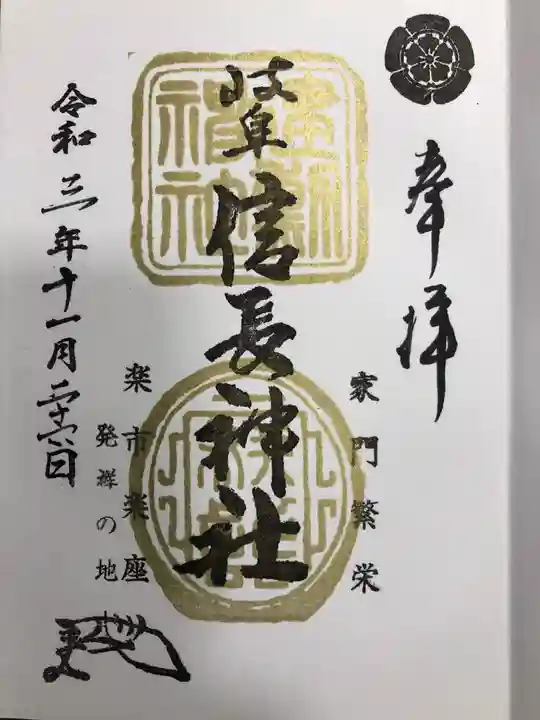 奉拝
家門繁栄
岐阜
信長神社
楽市楽座
発祥の地
令和三年十一月二十六日